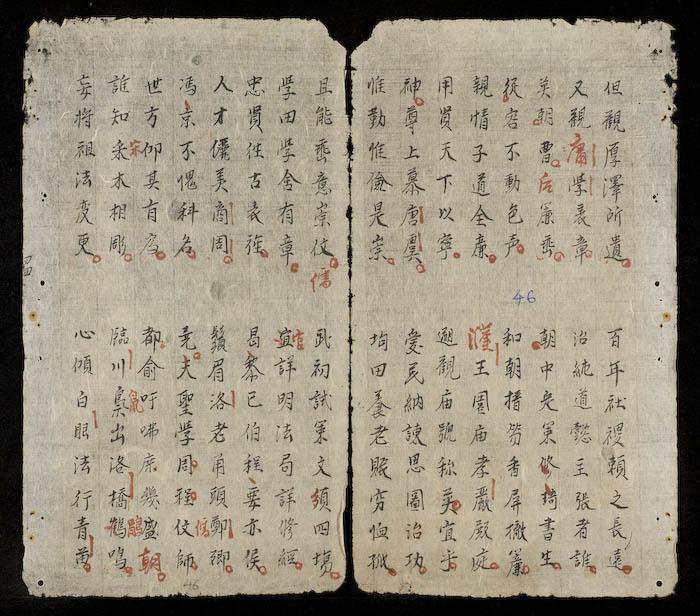 但觀厚澤所遺
百年社稷賴之長遠
又親庸學表章
治純道懿主張者誰
英朝曹后簾垂
朝中定策修琦書生
從容不動色声
和朝搢笏香屏撤簾
親情子道全廉
濮王園庙孝嚴殿
用賢天下以寧
廻觀庙號称英宜乎
神尊上慕唐虞
愛民納諫思圖治功
惟勤惟儉是崇
均田養老賑穷恤孤
46
且能垂意崇仗儒
武初試策文須四場
學田學舍有章
宮詳明法局詳修經
忠賢往古表旌
昌黎已伯程嬰亦侯
人才儷美商周
鬚眉洛老角頭鄭卿
馮京不愧科名
尭夫聖學周程仗師
世方仰其有為
都俞吁咈庶幾盛朝
誰知宋木相彫
臨川梟出洛橋鵑鳴
妄将祖法変更
心傾白眼法行青苗
46